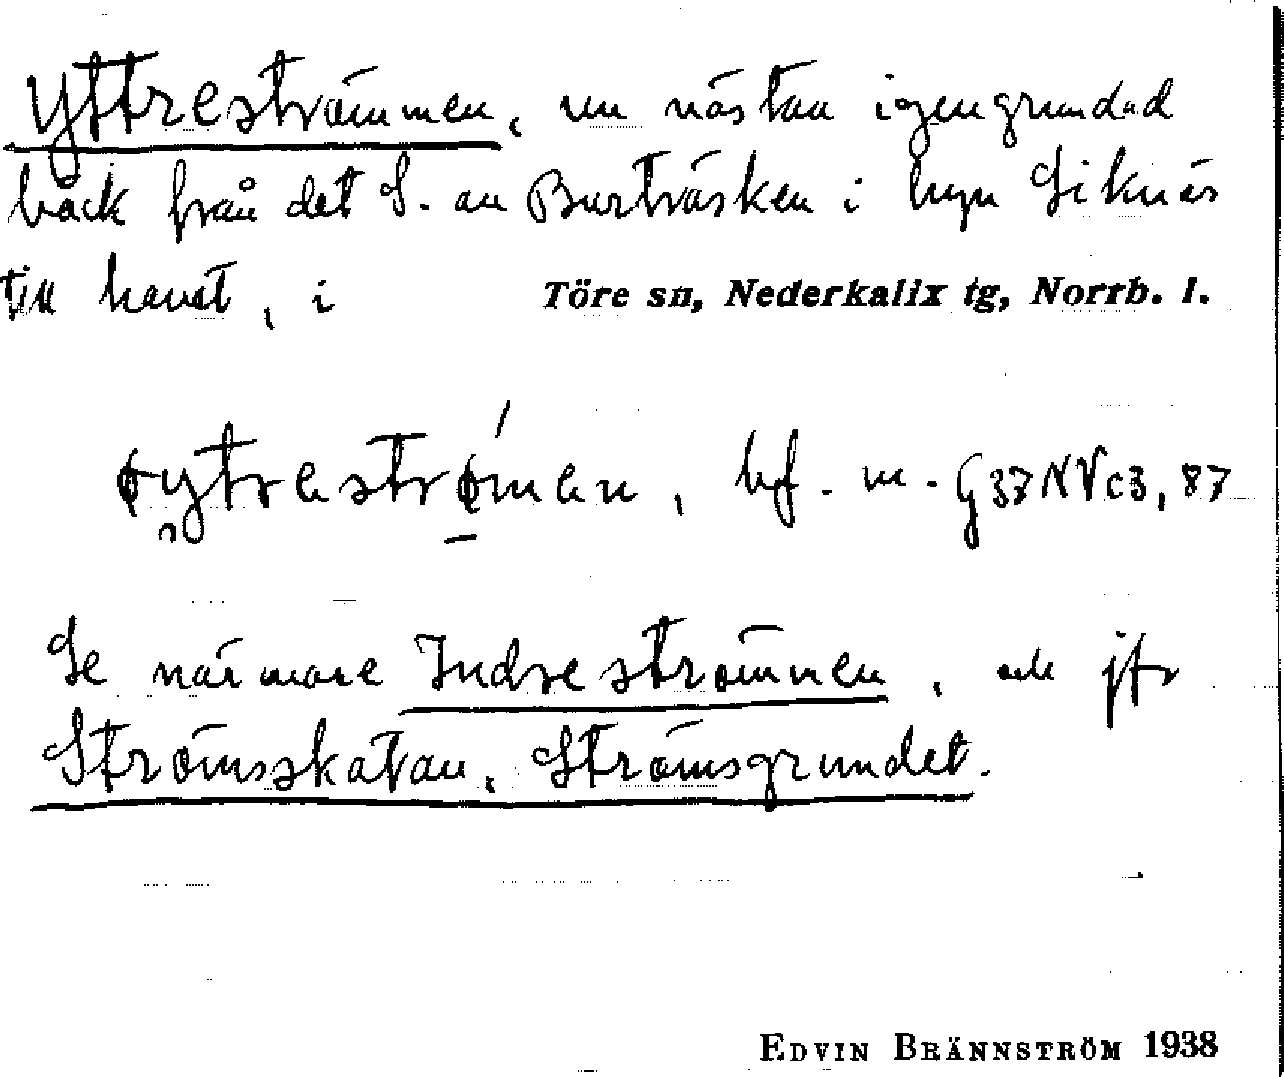 Yttreströmmen, en nästan igengrundad
bäck från det S. av Burträsken i byn Siknäs
till havet, i Töre sn, Nederkalix tg, Norrb. l.
bf. m. G37NVc3, 87
Se närmare Indreströmmen, och jfr
Strömsskatan, Strömsgrundet.
EDVIN BRÄNNSTRÖM 1938